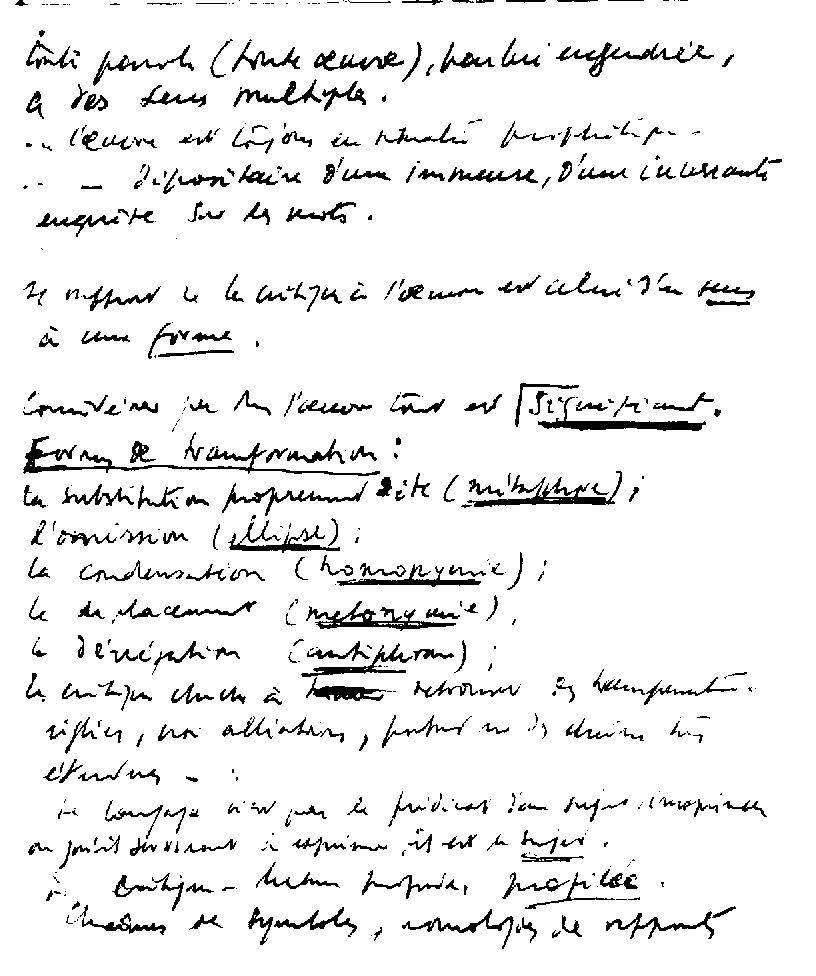 toute parole (toute œuvre), par lui engendrée,
a des sens multiples.
.. l'œuvre est toujours en situation prophétique -
.. - dépositaire d'une immense, d'une incessante
enquête sur les mots.
Le rapport de la critique à l'œuvre est celui d'un sens
à une forme.
Considérer que dans l'œuvre tout est signifiant.
Formes de transformation :
la substitution proprement dite (métaphore) ;
l'omission (ellipse) ;
la condensation (homonymie) ;
le déplacement (métonymie),
la dénégation (antiphrase) ;
la critique cherche à retrouver des transformations
réglées, non aléatoires, portant sur des chaînes très
étendues - :
Le langage n'est pas le prédicat d'un sujet, inexprimable
ou qu'il servirait à exprimer, il est le sujet.
critique - lecture profonde, profilée.
Chaînes de symboles, homologies de rapports